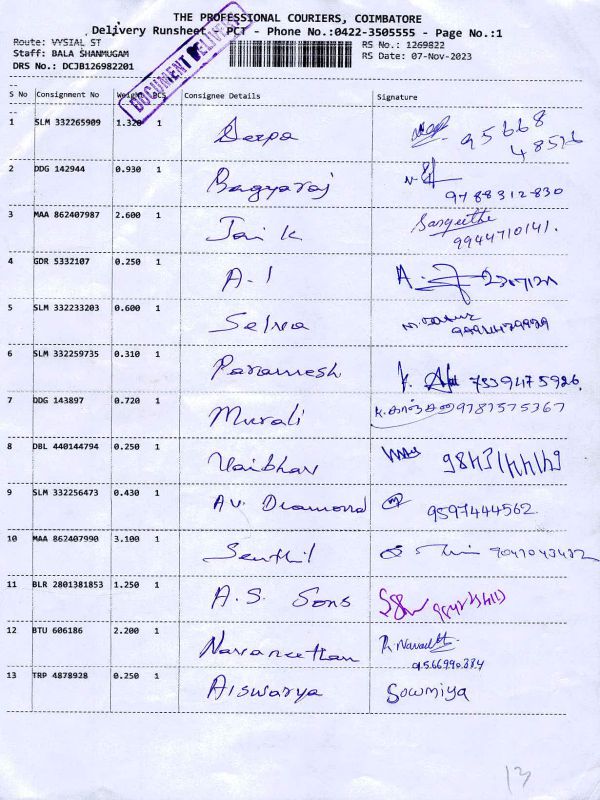 THE PROFESSIONAL COURIERS, COIMBATORE
Delivery Runsheet - PCT - Phone No.:0422-3505555 - Page No.:1
Route: VYSIAL ST
Staff: BALA SHANMUGAM
DRS No.: DCJB126982201
RS No.: 1269822
RS Date: 07-Nov-2023
DOCUMENT DELIVERY
S No Consignment No Weight PCS Consignee Details Signature
1 SLM 332265909 1.320 1 Deepa 95668
48526
2 DDG 142944 0.930 1 Bagyaraj 9788312830
3 MAA 862407987 2.600 1 Jai k Sangeetha
9944710141.
4 GDR 5332107 0.250 1 A. I A.
5 SLM 332233203 0.600 1 Selva
6 SLM 332259735 0.310 1 Paramesh K. 7539475926.
7 DDG 143897 0.720 1 Murali K. காஞ்சனா 9787575367
8 DBL 440144794 0.250 1 Vaibhav
9 SLM 332256473 0.430 1 A.V. Diamond 9597444562
10 MAA 862407990 3.100 1 Senthil 9047043432
11 BLR 2801381853 1.250 1 A.S. Sons
12 BTU 606186 2.200 1 Navaneethan R. Navaneeth
9566990384
13 TRP 4878928 0.250 1 Aiswarya Sowmiya
13